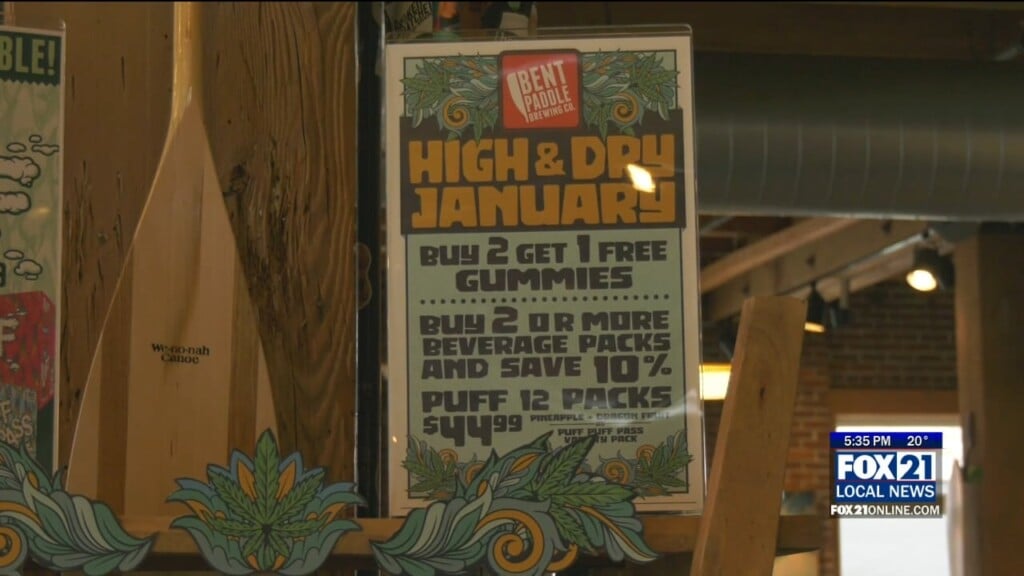 BLE!
BENT
PADDLE
BREWING CO.
HIGH & DRY
JANUARY
BUY 2 GET 1 FREE
GUMMIES
BUY 2 OR MORE
BEVERAGE PACKS
AND SAVE 10%
PUFF 12 PACKS
$44.99
PINEAPPLE + DRAGON FRUIT
PUFF PUFF PASS
VARIETY PACK
We-no-nah
Canoe
5:35 PM 20°
FOX 21
LOCAL NEWS
FOX21ONLINE.COM